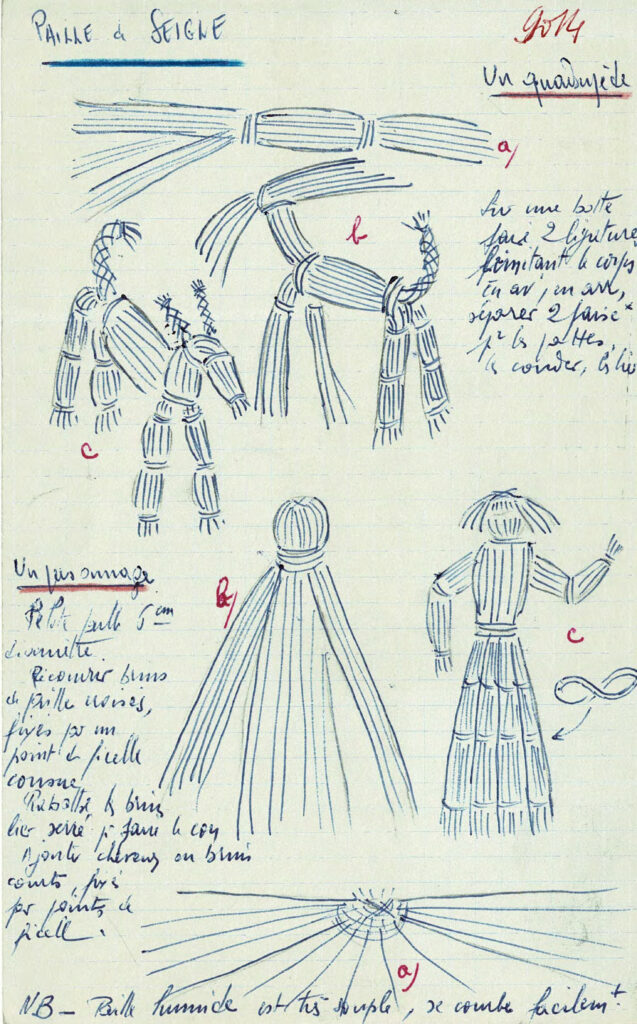 PAILLE de SEIGLE
Un quadrupède
a)
b
Sur une botte
faire 2 ligatures
limitant le corps
En avt, en arr,
séparer 2 faisx
pr les pattes,
les couder, les lier
c
Un personnage
Petite balle 6 cm
diamètre.
Recouvrir brins
de paille croisés,
fixés par un
point de ficelle
cousue
Rabattre les brins
lier serré pr faire le cou
Ajouter cheveux en brins
courts, fixés
par points de
ficelle.
b)
c
a)
NB - Paille humide est très souple, se courbe facilemt.